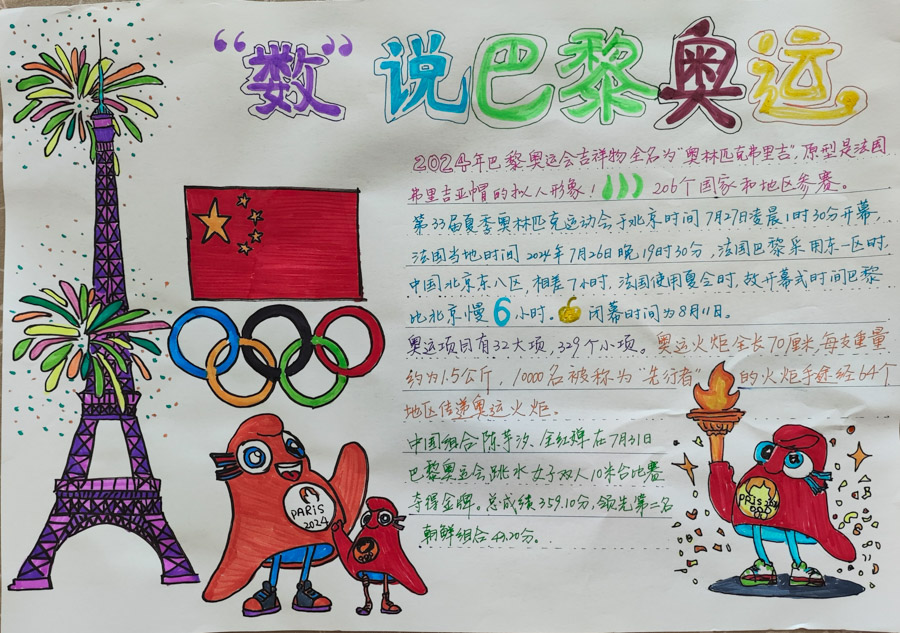 “数”说巴黎奥运
2024年巴黎奥运会吉祥物全名为“奥林匹克弗里吉”,原型是法国
弗里吉亚帽的拟人形象! 206个国家和地区参赛。
第33届夏季奥林匹克运动会于北京时间7月27日凌晨1时30分开幕,
法国当地时间2024年7月26日晚19时30分,法国巴黎采用东一区时,
中国北京东八区,相差7小时.法国使用夏令时,故开幕式时间巴黎
比北京慢6小时. 闭幕时间为8月11日。
奥运项目有32大项,329个小项。奥运火炬全长70厘米,每支重量
约为1.5公斤,10000名被称为“先行者”的火炬手途经64个
地区传递奥运火炬。
中国组合陈芋汐、全红婵在7月31日
巴黎奥运会跳水女子双人10米台比赛
夺得金牌,总成绩359.10分,领先第二名
朝鲜组合 分。
PARIS
2024
PRIS
2024